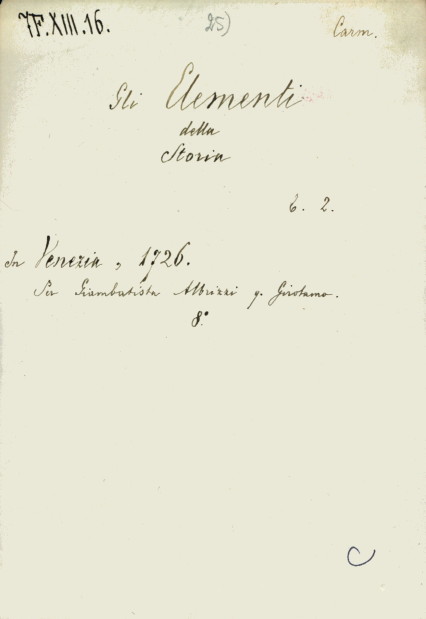 7F.XIII.16.
25)
Carm.
Gli Elementi
della
Storia
t. 2.
In Venezia, 1726.
Per Giambatista Albrizzi q. Girolamo.
8°
C